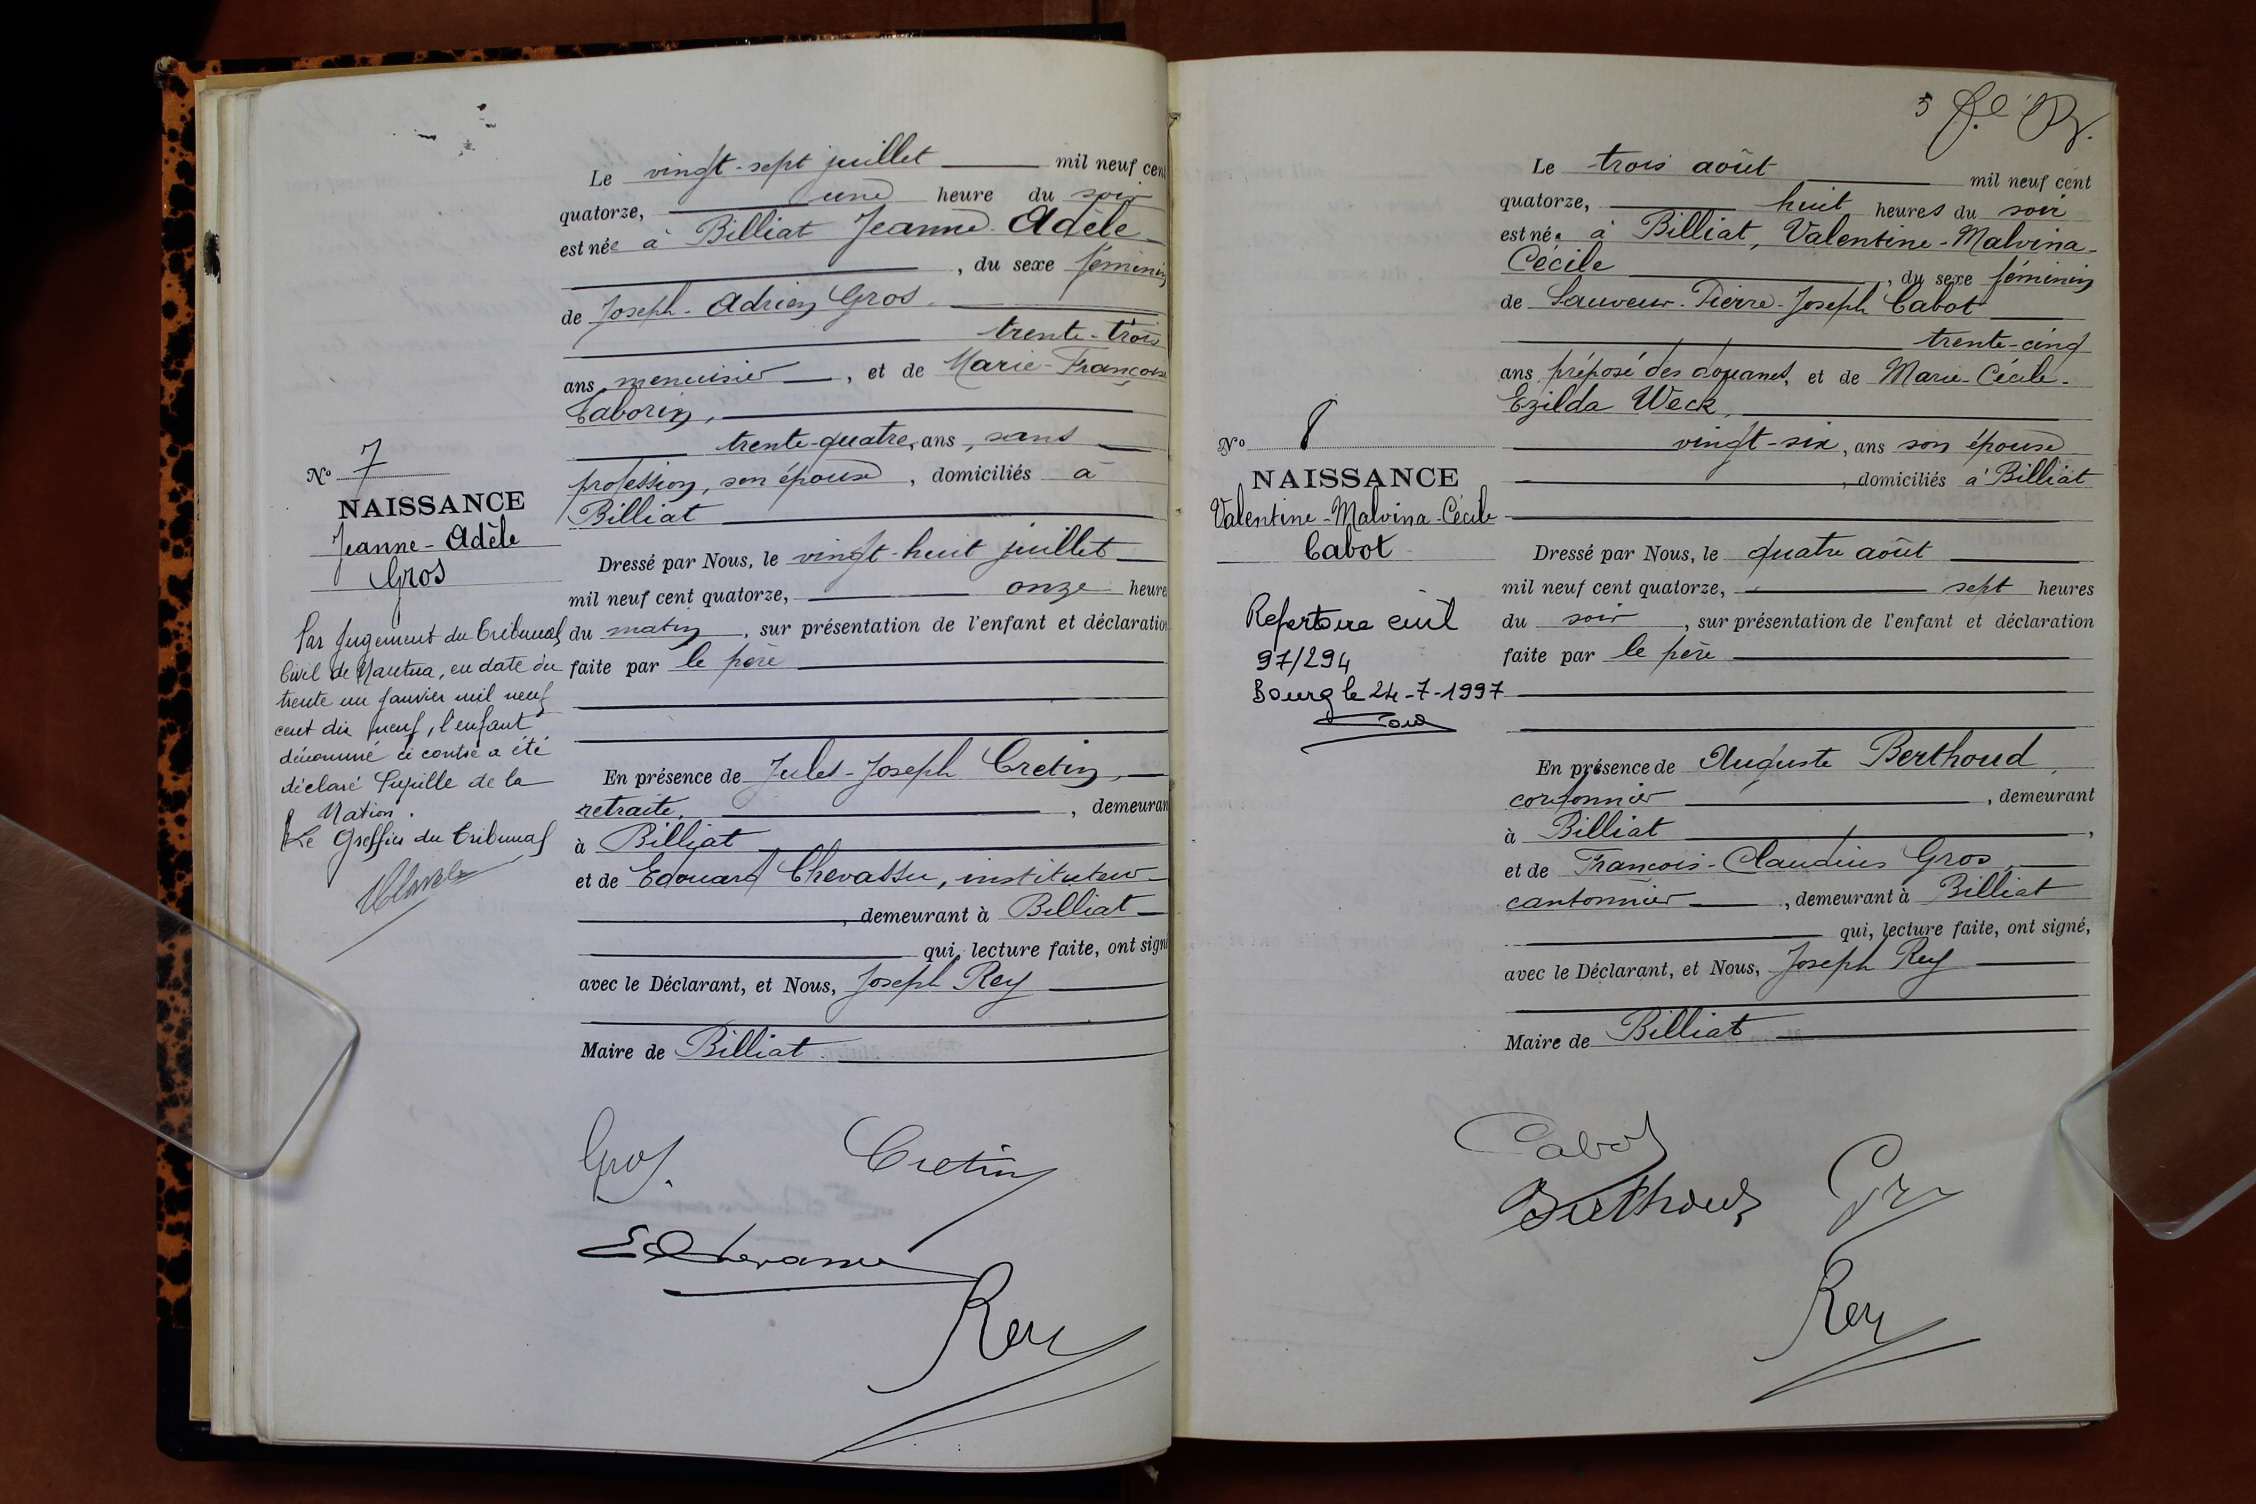 Le vingt-sept juillet mil neuf cent
quatorze, une heure du soir
est née à Billiat Jeanne-Adèle
, du sexe féminin
de Joseph-Adrien Gros
trente-trois
ans, menuisier, et de Marie-Françoise
Taborin,
trente-quatre, ans, sans
profession, son épouse, domiciliés à
Billiat
Nº 7
NAISSANCE
Jeanne-Adèle
Gros
Dressé par Nous, le vingt-huit juillet
mil neuf cent quatorze, onze heure
du matin, sur présentation de l'enfant et déclaration
faite par le père
Par Jugement du Tribunal
Civil de Nantua, en date du
trente un Janvier mil neuf
cent dix neuf, l'enfant
dénommé ci contre a été
déclaré Pupille de la
Nation.
Le Greffier du Tribunal
En présence de Jules-Joseph Cretin,
retraité, , demeurant
à Billiat
et de Edouard Chevassu, instituteur
, demeurant à Billiat
qui, lecture faite, ont signé
avec le Déclarant, et Nous, Joseph Rey
Maire de Billiat
Gros.
Cretin
Ed Chevassu
Rey
5
Le trois août mil neuf cent
quatorze, huit heures du soir
est née à Billiat, Valentine-Malvina-
Cécile , du sexe féminin
de Sauveur-Pierre-Joseph Cabot
trente-cinq
ans, préposé des douanes, et de Marie-Cécile-
Ezilda Weck,
vingt-six, ans son épouse
, domiciliés à Billiat
Nº 8
NAISSANCE
Valentine-Malvina-Cécile
Cabot
Repertoire civil
97/294
Bourg le 24-7-1997
Dressé par Nous, le quatre août
mil neuf cent quatorze, sept heures
du soir, sur présentation de l'enfant et déclaration
faite par le père
En présence de Auguste Berthoud,
cordonnier , demeurant
à Billiat ,
et de François-Claudius Gros,
cantonnier , demeurant à Billiat
qui, lecture faite, ont signé,
avec le Déclarant, et Nous, Joseph Rey
Maire de Billiat
Cabot
Berthoud
Gros
Rey